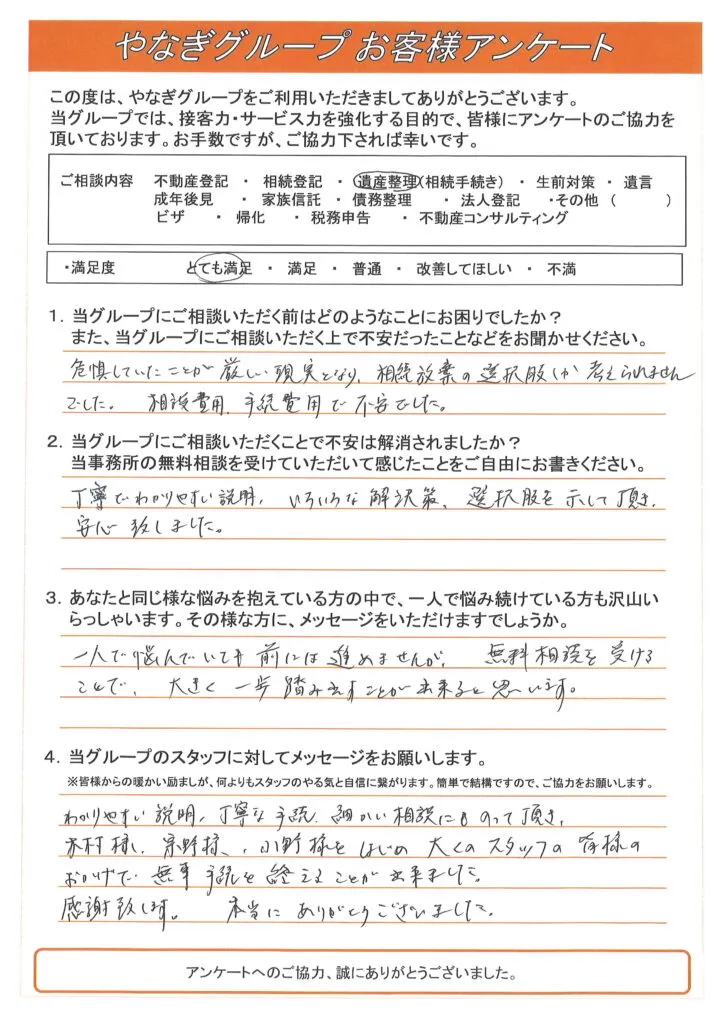 やなぎグループ お客様アンケート
この度は、やなぎグループをご利用いただきましてありがとうございます。
当グループでは、接客力・サービス力を強化する目的で、皆様にアンケートのご協力を
頂いております。お手数ですが、ご協力下されば幸いです。
ご相談内容 不動産登記 ・ 相続登記 ・ 遺産整理(相続手続き) ・ 生前対策 ・ 遺言
成年後見 ・ 家族信託 ・ 債務整理 ・ 法人登記 ・その他 ( )
ビザ ・ 帰化 ・ 税務申告 ・ 不動産コンサルティング
・満足度 とても満足 ・ 満足 ・ 普通 ・ 改善してほしい ・ 不満
1. 当グループにご相談いただく前はどのようなことにお困りでしたか?
また、当グループにご相談いただく上で不安だったことなどをお聞かせください。
危惧していたことが厳しい現実となり、相続放棄の選択肢しか考えられません
でした。 相談費用、手続費用で不安でした。
2. 当グループにご相談いただくことで不安は解消されましたか?
当事務所の無料相談を受けていただいて感じたことをご自由にお書きください。
丁寧でわかりやすい説明、いろいろな解決策、選択肢を示して頂き、
安心致しました。
3. あなたと同じ様な悩みを抱えている方の中で、一人で悩み続けている方も沢山い
らっしゃいます。その様な方に、メッセージをいただけますでしょうか。
一人で悩んでいても前には進めませんが、無料相談を受ける
ことで、大きく一歩踏み出すことが出来ると思います。
4. 当グループのスタッフに対してメッセージをお願いします。
※皆様からの暖かい励ましが、何よりもスタッフのやる気と自信に繋がります。簡単で結構ですので、ご協力をお願いします。
わかりやすい説明、丁寧な手続、細かい相談にものって頂き、
木村様、様、小野様をはじめ 大くのスタッフの皆様の
おかげで無事手続を終えることが出来ました。
感謝致します。 本当にありがとうございました。
アンケートへのご協力、誠にありがとうございました。